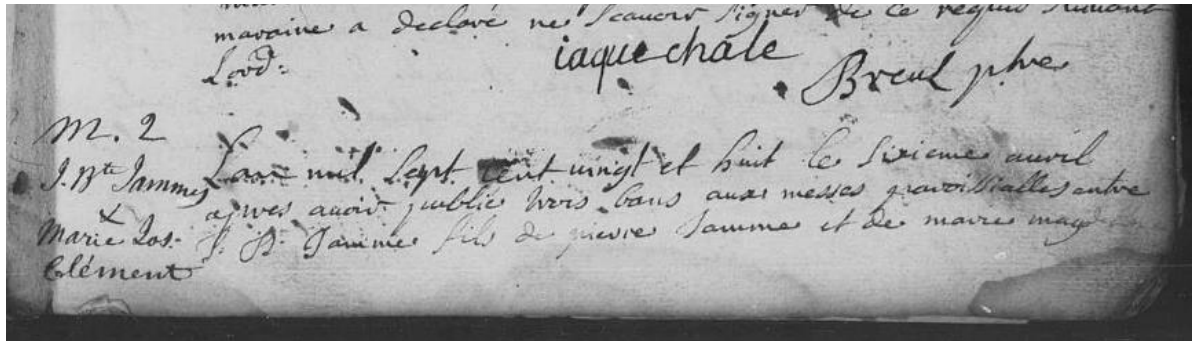 maraine a declaré ne scavoir signer de ce requis suivant
Lord:
iaque chale
Breul ptre
M. 2
J. Bte Jammes
&
Marie Jos.
Clément
Lan mil sept cent vingt et huit le sixieme auril
apres auoir publié trois bans aux messes paroissialles entre
J. B. Jamme fils de pierre Jamme et de marie mag